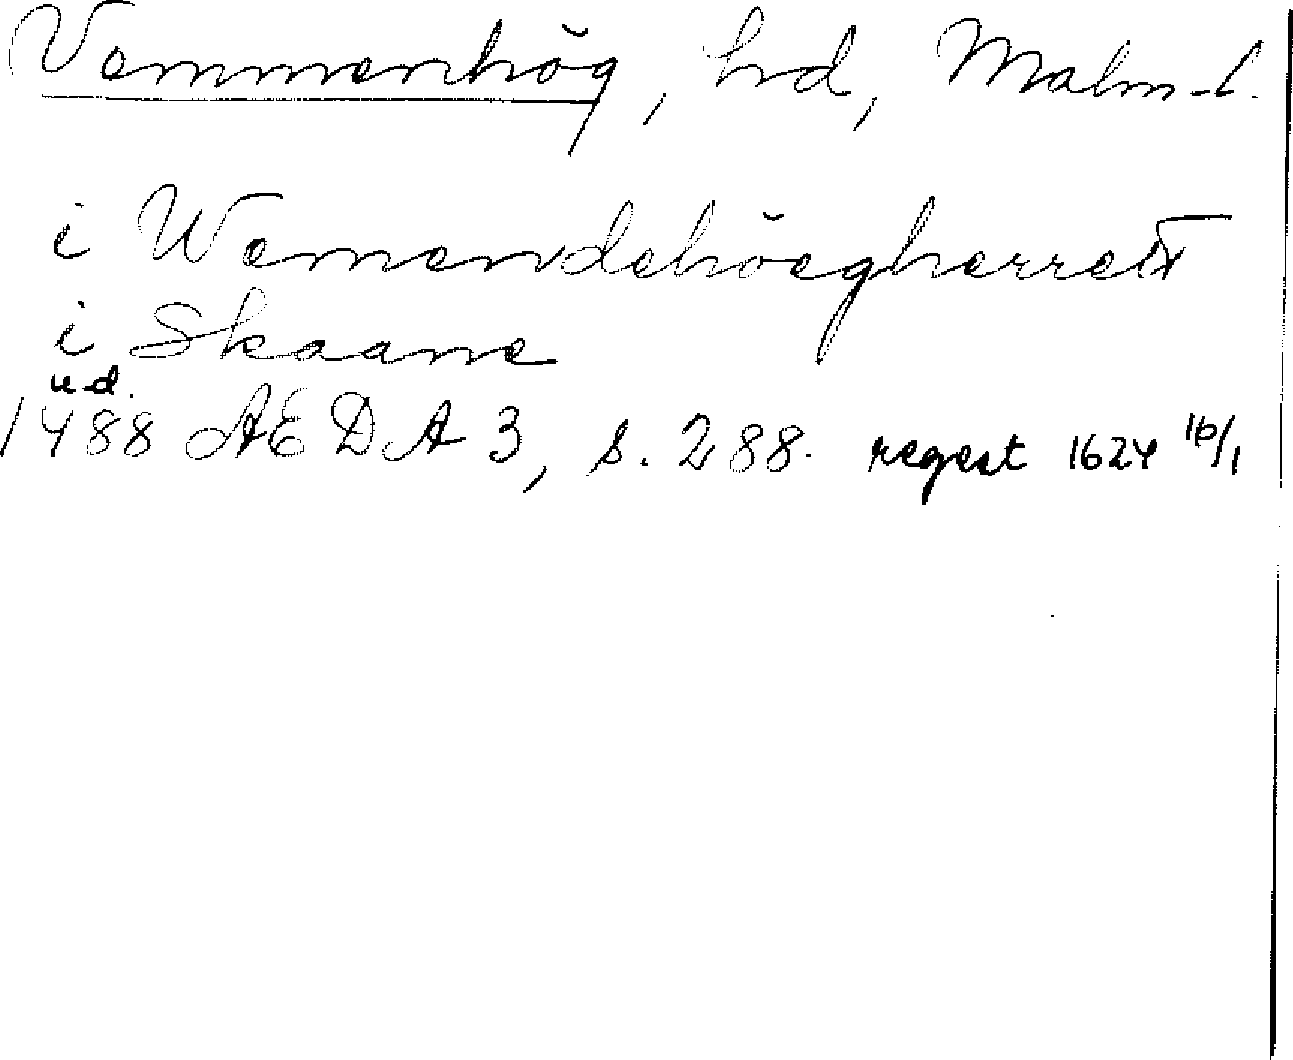 Vemmenhög, hd, Malm-l.
i Wemendehöegherrett
i Skaane
u.d.
1488 AEDA 3, s. 288. regest 1624 16/1